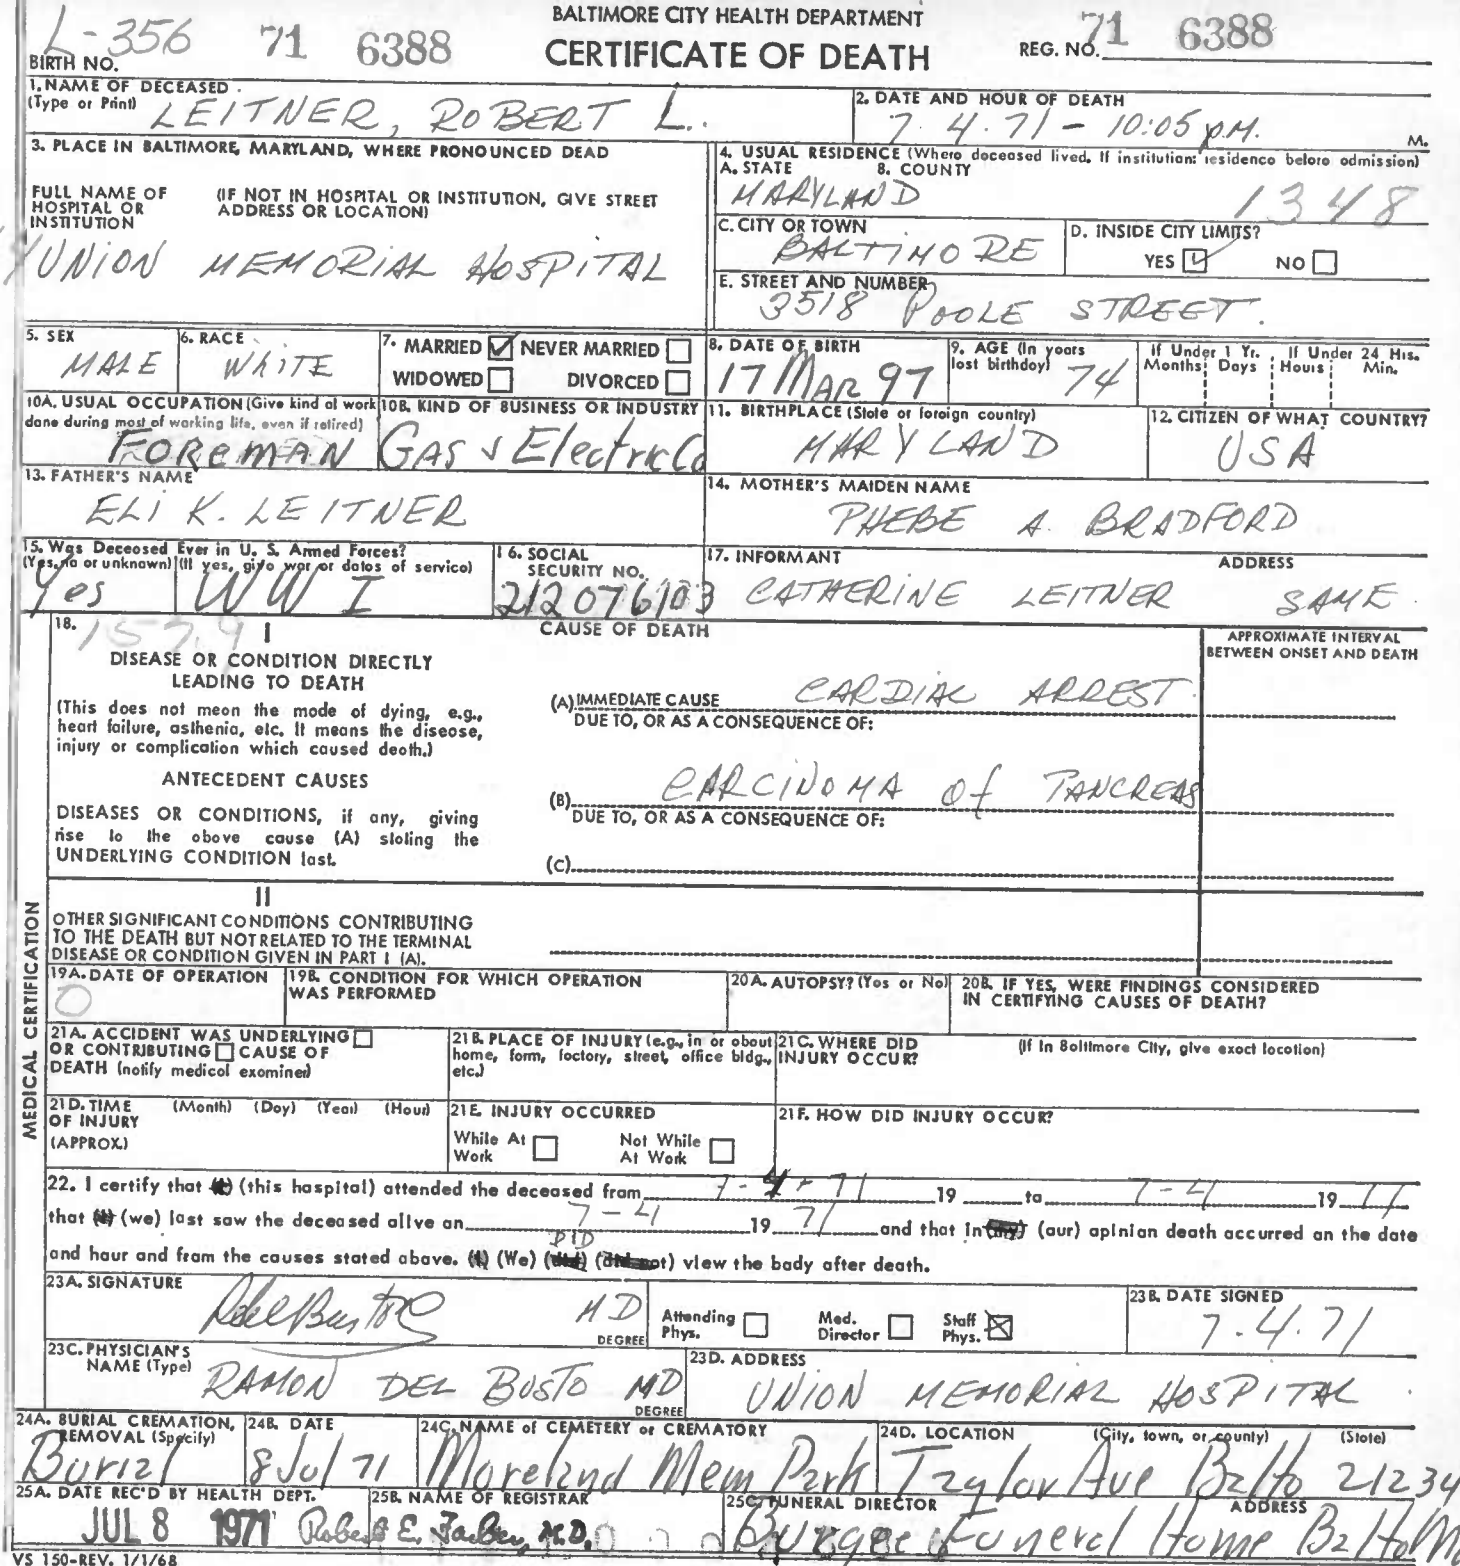 BALTIMORE CITY HEALTH DEPARTMENT
L-356 71 6388 CERTIFICATE OF DEATH REG. NO. 71 6388
BIRTH NO.
1. NAME OF DECEASED (Type or Print) LEITNER, ROBERT L.
2. DATE AND HOUR OF DEATH 7.4.71 - 10:05 P.M. M.
3. PLACE IN BALTIMORE, MARYLAND, WHERE PRONOUNCED DEAD
FULL NAME OF HOSPITAL OR INSTITUTION (IF NOT IN HOSPITAL OR INSTITUTION, GIVE STREET ADDRESS OR LOCATION)
UNION MEMORIAL HOSPITAL
4. USUAL RESIDENCE (Where deceased lived. If institution: residence before admission)
A. STATE B. COUNTY
MARYLAND 1348
C. CITY OR TOWN BALTIMORE
D. INSIDE CITY LIMITS? YES NO
E. STREET AND NUMBER 3518 POOLE STREET.
5. SEX MALE
6. RACE WHITE
7. MARRIED NEVER MARRIED
WIDOWED DIVORCED
8. DATE OF BIRTH 17 MAR 97
9. AGE (In years last birthday) 74
If Under 1 Yr. Months Days If Under 24 Hrs. Hours Min.
10A. USUAL OCCUPATION (Give kind of work done during most of working life, even if retired) FOREMAN
10B. KIND OF BUSINESS OR INDUSTRY Gas & Electric Co
11. BIRTHPLACE (State or foreign country) MARYLAND
12. CITIZEN OF WHAT COUNTRY? USA
13. FATHER'S NAME ELI K. LEITNER
14. MOTHER'S MAIDEN NAME PHEBE A. BRADFORD
15. Was Deceased Ever in U. S. Armed Forces?
(Yes, no or unknown) (If yes, give war or dates of service)
Yes WW I
16. SOCIAL SECURITY NO. 212076103
17. INFORMANT ADDRESS
CATHERINE LEITNER SAME
MEDICAL CERTIFICATION
18. 157.9 I CAUSE OF DEATH APPROXIMATE INTERVAL BETWEEN ONSET AND DEATH
DISEASE OR CONDITION DIRECTLY LEADING TO DEATH
(This does not mean the mode of dying, e.g., heart failure, asthenia, etc. It means the disease, injury or complication which caused death.)
(A) IMMEDIATE CAUSE CARDIAC ARREST
DUE TO, OR AS A CONSEQUENCE OF:
ANTECEDENT CAUSES
DISEASES OR CONDITIONS, if any, giving rise to the above cause (A) stating the UNDERLYING CONDITION last.
(B) CARCINOMA of PANCREAS
DUE TO, OR AS A CONSEQUENCE OF:
(C)
II
OTHER SIGNIFICANT CONDITIONS CONTRIBUTING TO THE DEATH BUT NOT RELATED TO THE TERMINAL DISEASE OR CONDITION GIVEN IN PART I (A).
19A. DATE OF OPERATION 0
19B. CONDITION FOR WHICH OPERATION WAS PERFORMED
20A. AUTOPSY? (Yes or No)
20B. IF YES, WERE FINDINGS CONSIDERED IN CERTIFYING CAUSES OF DEATH?
21A. ACCIDENT WAS UNDERLYING OR CONTRIBUTING CAUSE OF DEATH (notify medical examiner)
21B. PLACE OF INJURY (e.g., in or about home, farm, factory, street, office bldg., etc.)
21C. WHERE DID INJURY OCCUR? (If in Baltimore City, give exact location)
21D. TIME OF INJURY (APPROX.) (Month) (Day) (Year) (Hour)
21E. INJURY OCCURRED
While At Work Not While At Work
21F. HOW DID INJURY OCCUR?
22. I certify that (I) (this hospital) attended the deceased from 7-4-71 19 to 7-4 19 71
that (I) (we) last saw the deceased alive on 7-4 19 71 and that in (my) (our) opinion death occurred on the date
DID
and hour and from the causes stated above. (I) (We) (did) (did not) view the body after death.
23A. SIGNATURE MD DEGREE
Attending Phys. Med. Director Staff Phys.
23B. DATE SIGNED 7.4.71
23C. PHYSICIAN'S NAME (Type) RAMON DEL BUSTO MD DEGREE
23D. ADDRESS UNION MEMORIAL HOSPITAL
24A. BURIAL CREMATION, REMOVAL (Specify) Burial
24B. DATE 8 Jul 71
24C. NAME of CEMETERY or CREMATORY Moreland Mem Park
24D. LOCATION (City, town, or county) (State) Taylor Ave Balto 21234
25A. DATE REC'D BY HEALTH DEPT. JUL 8 1971
25B. NAME OF REGISTRAR Robert E. Farber, M.D.
25C. FUNERAL DIRECTOR ADDRESS Burgee Funeral Home Balto Md
VS 150-REV. 1/1/68